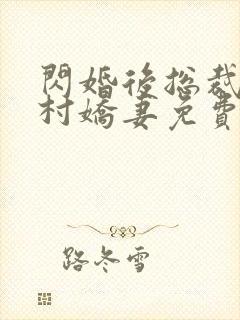 閃婚後總裁
村嬌妻免費
路冬雪